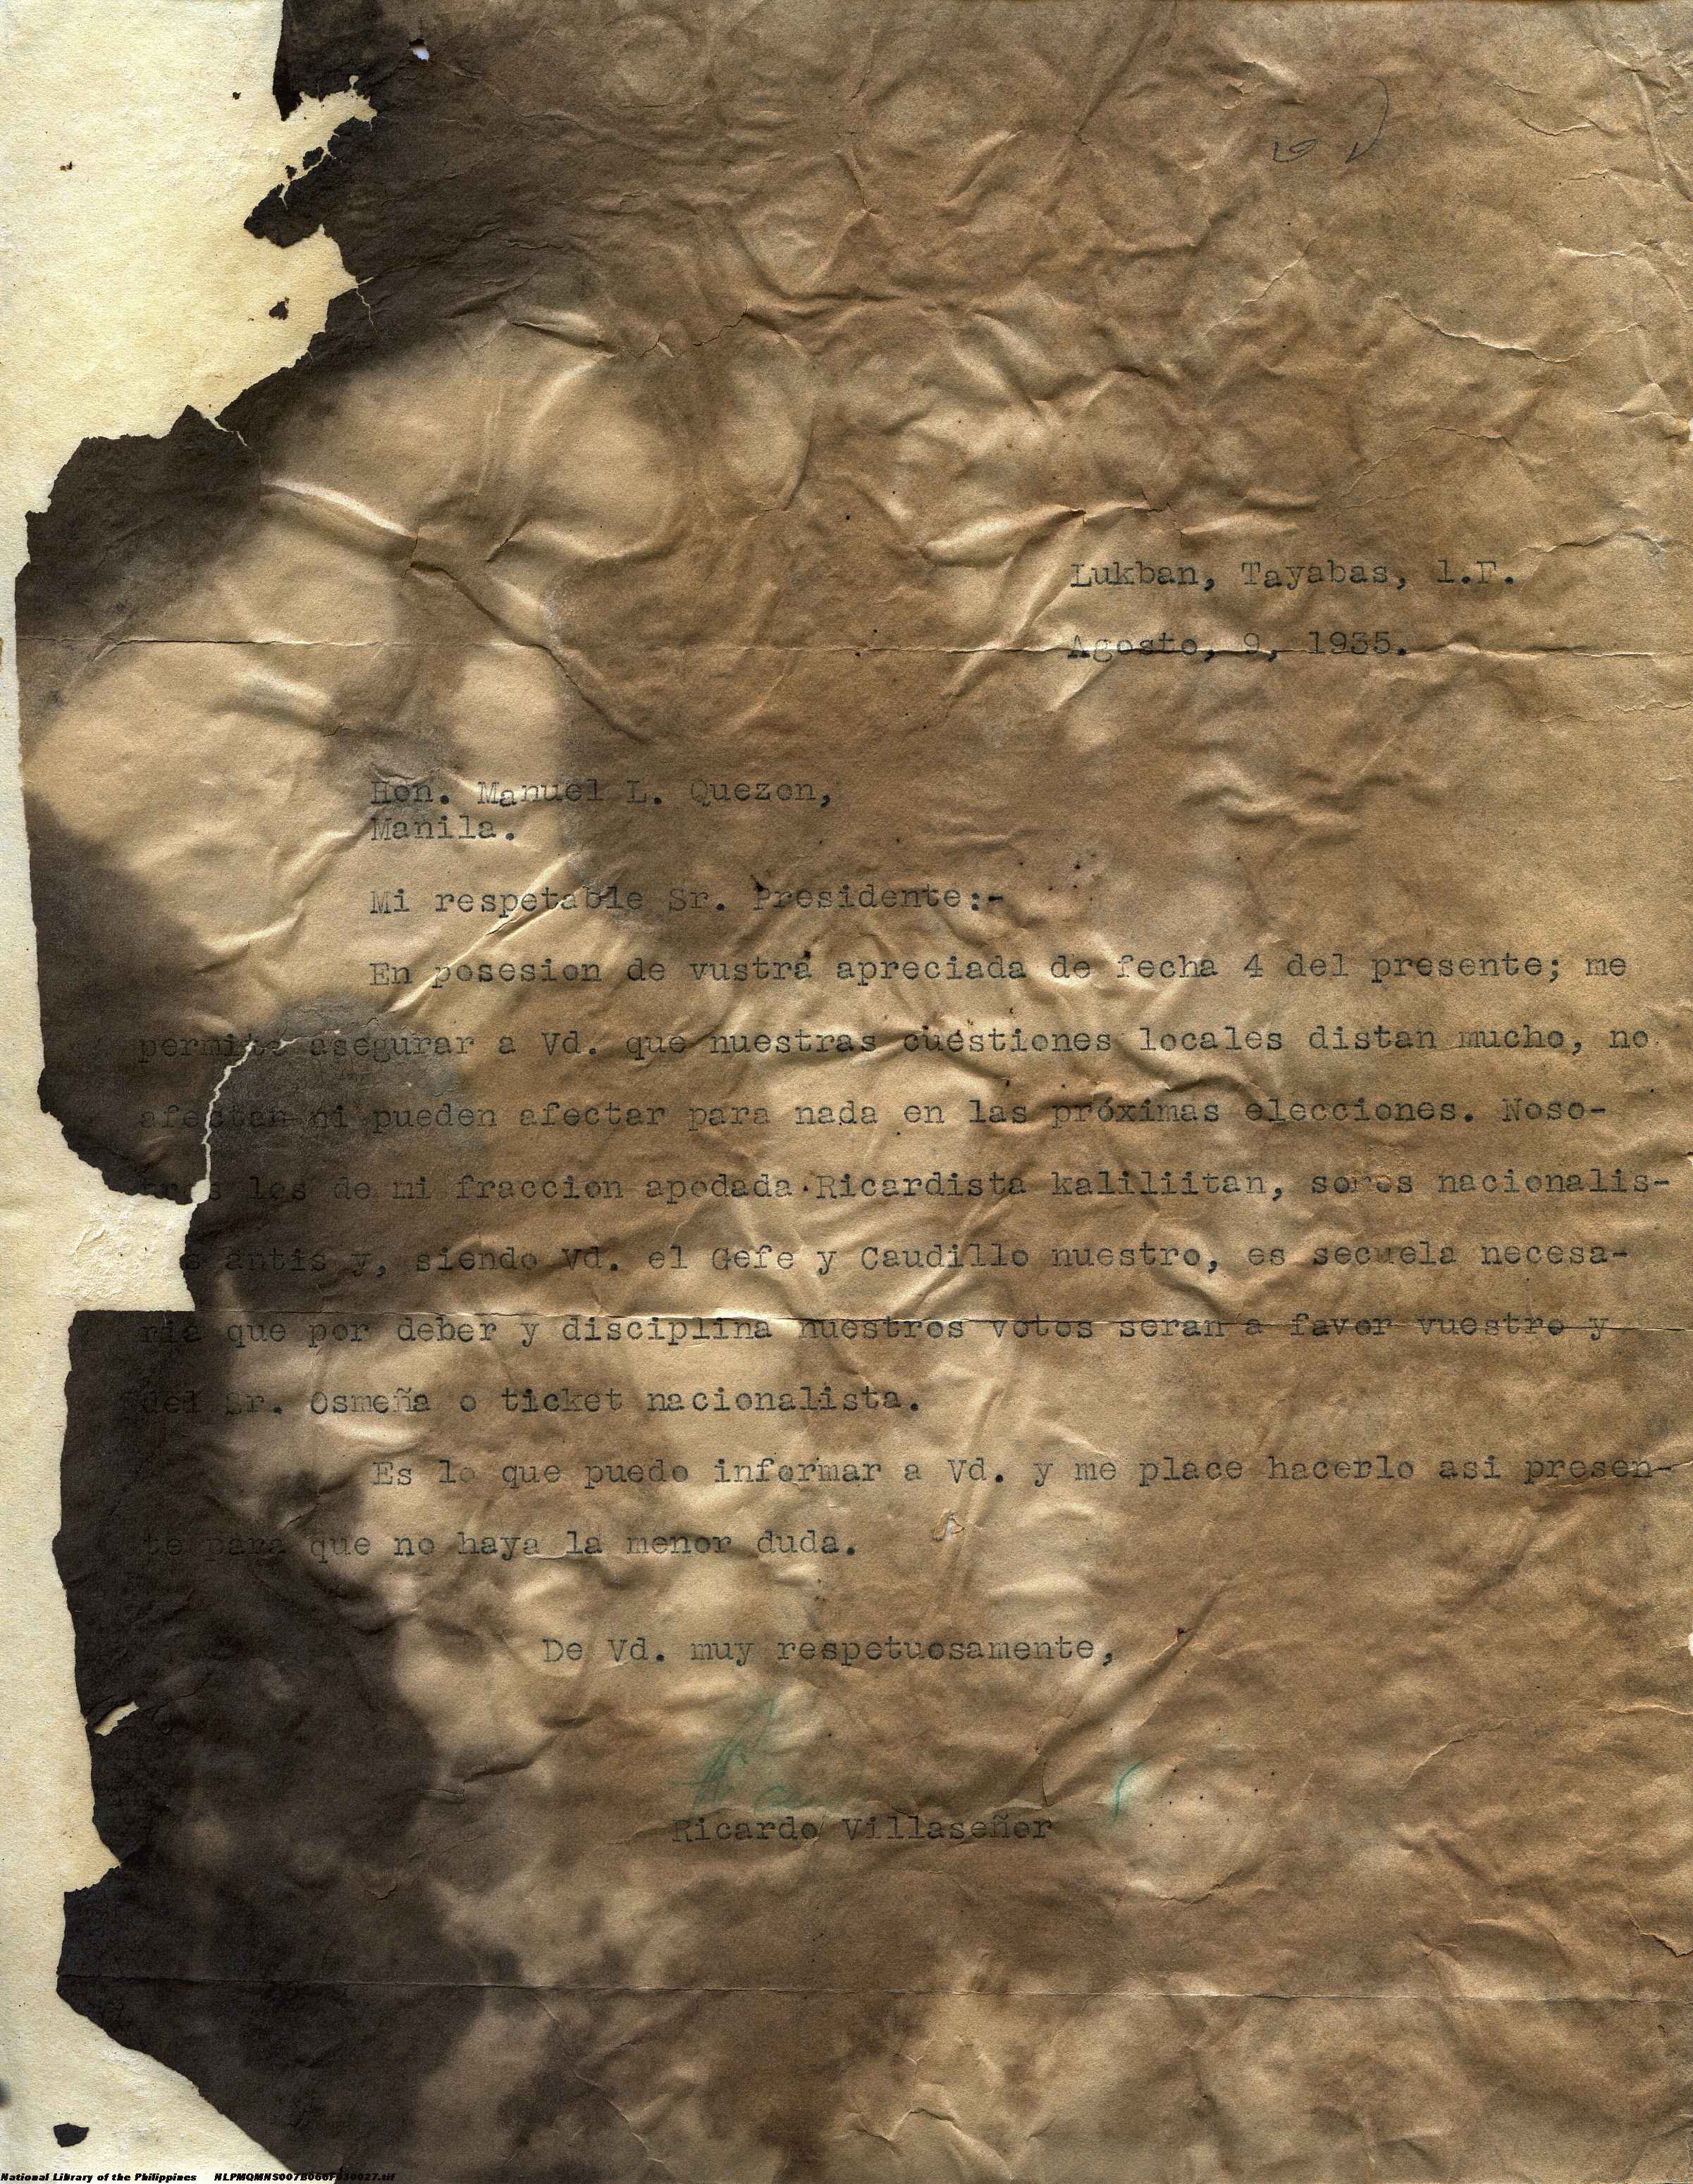 Lukban, Tayabas, 1.F.
Agosto, 9, 1935.
Hon. Manuel L. Quezon,
Manila.
Mi respetable Sr. Presidente:-
En posesion de vustra apreciada de fecha 4 del presente; me
permito asegurar a Vd. que nuestras cuestiones locales distan mucho, no
afectan ni pueden afectar para nada en las próximas elecciones. Noso-
tros los de mi fraccion apodada Ricardista kaliliitan, somos nacionalis-
antis y, siendo Vd. el Gefe y Caudillo nuestro, es secuela necesa-
ria que por deber y disciplina nuestros votos seran a favor vuestro y
del Sr. Osmeña o ticket nacionalista.
Es lo que puedo informar a Vd. y me place hacerlo asi presen-
te para que no haya la menor duda.
De Vd. muy respetuosamente,
Ricardo Villaseñor
National Library of the Philippines